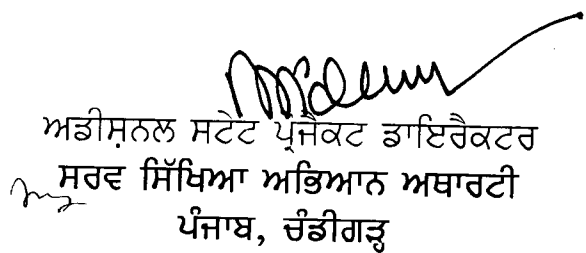 ਅਡੀਸ਼ਨਲ ਸਟੇਟ ਪ੍ਰੋਜੈਕਟ ਡਾਇਰੈਕਟਰ
ਸਰਵ ਸਿੱਖਿਆ ਅਭਿਆਨ ਅਥਾਰਟੀ
ਪੰਜਾਬ, ਚੰਡੀਗੜ੍ਹ